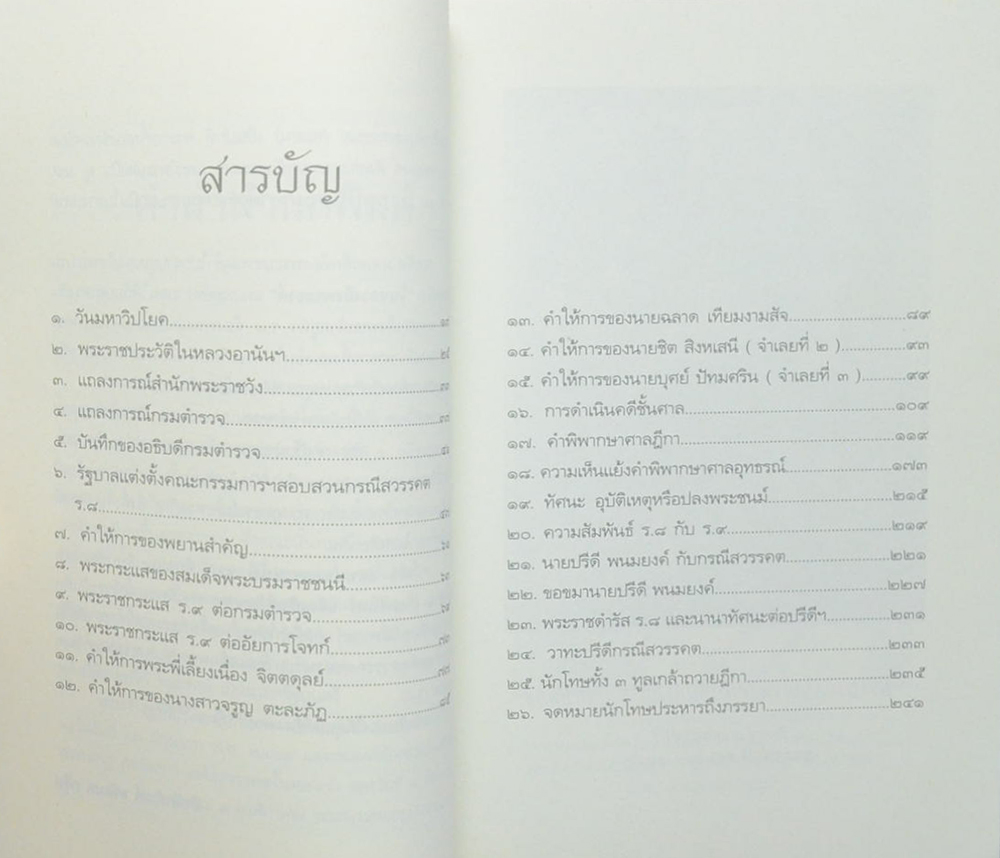 สารบัญ
๑. วันมหาวิปโยค
๒. พระราชประวัติในหลวงอานันฯ
๓. แถลงการณ์สำนักพระราชวัง
๔. แถลงการณ์กรมตำรวจ
๕. บันทึกของอธิบดีกรมตำรวจ
๖. รัฐบาลแต่งตั้งคณะกรรมการฯสอบสวนกรณีสวรรคต
ร.๘
๗. คำให้การของพยานสำคัญ
๘. พระกระแสของสมเด็จพระบรมราชชนนี
๙. พระราชกระแส ร.๙ ต่อกรมตำรวจ
๑๐. พระราชกระแส ร.๙ ต่ออัยการโจทก์
๑๑. คำให้การพระพี่เลี้ยงเนื่อง จิตตดุลย์
๑๒. คำให้การของนางสาวจรูญ ตะละภัฏ
๑๓. คำให้การของนายฉลาด เทียมงามสัจ ๘๙
๑๔. คำให้การของนายชิต สิงหเสนี ( จำเลยที่ ๒ ) ๙๓
๑๕. คำให้การของนายบุศย์ ปัทมศริน ( จำเลยที่ ๓ ) ๙๙
๑๖. การดำเนินคดีชั้นศาล ๑๐๙
๑๗. คำพิพากษาศาลฎีกา ๑๑๙
๑๘. ความเห็นแย้งคำพิพากษาศาลอุทธรณ์ ๑๗๓
๑๙. ทัศนะ อุบัติเหตุหรือปลงพระชนม์ ๒๑๕
๒๐. ความสัมพันธ์ ร.๘ กับ ร.๙ ๒๑๙
๒๑. นายปรีดี พนมยงค์ กับกรณีสวรรคต ๒๒๑
๒๒. ขอขมานายปรีดี พนมยงค์ ๒๒๗
๒๓. พระราชดำรัส ร.๘ และนานาทัศนะต่อปรีดีฯ ๒๓๑
๒๔. วาทะปรีดีกรณีสวรรคต ๒๓๓
๒๕. นักโทษทั้ง ๓ ทูลเกล้าถวายฎีกา ๒๓๕
๒๖. จดหมายนักโทษประหารถึงภรรยา ๒๔๑